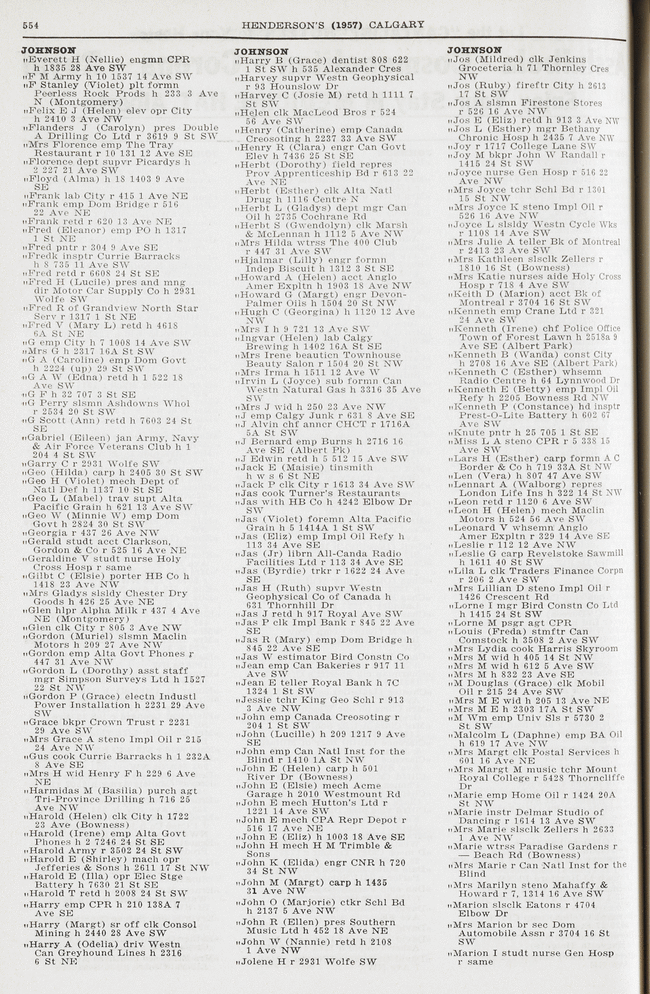 554
HENDERSON'S (1957) CALGARY
JOHNSON
"Everett H (Nellie) engmn CPR
h 1835 28 Ave SW
"F M Army h 10 1537 14 Ave SW
"F Stanley (Violet) plt formn
Peerless Rock Prods h 233 3 Ave
N (Montgomery)
"Felix E J (Helen) elev opr City
h 2410 3 Ave NW
"Flanders J (Carolyn) pres Double
A Drilling Co Ltd r 3619 9 St SW
"Mrs Florence emp The Tray
Restaurant r 10 131 12 Ave SE
"Florence dept supvr Picardys h
2 227 21 Ave SW
"Floyd (Alma) h 18 1403 9 Ave
SE
"Frank lab City r 415 1 Ave NE
"Frank emp Dom Bridge r 516
22 Ave NE
"Frank retd r 620 13 Ave NE
"Fred (Eleanor) emp PO h 1317
1 St NE
"Fred pntr r 304 9 Ave SE
"Fredk insptr Currie Barracks
h 8 735 11 Ave SW
"Fred retd r 6608 24 St SE
"Fred H (Lucile) pres and mng
dir Motor Car Supply Co h 2931
Wolfe SW
"Fred R of Grandview North Star
Serv r 1317 1 St NE
"Fred V (Mary L) retd h 4618
6A St NE
"G emp City h 7 1008 14 Ave SW
"Mrs G h 2317 16A St NW
"G A (Caroline) emp Dom Govt
h 2224 (up) 29 St SW
"G A W (Edna) retd h 1 522 18
Ave SW
"G F h 32 707 3 St SE
"G Perry slsmn Ashdowns Whol
r 2534 20 St SW
"G Scott (Ann) retd h 7603 24 St
SE
"Gabriel (Eileen) jan Army, Navy
& Air Force Veterans Club h 1
204 4 St SW
"Garry C r 2931 Wolfe SW
"Geo (Hilda) carp h 2405 30 St SW
"Geo H (Violet) mech Dept of
Natl Def h 1137 10 St SE
"Geo L (Mabel) trav supt Alta
Pacific Grain h 621 13 Ave SW
"Geo W (Minnie W) emp Dom
Govt h 2824 30 St SW
"Georgia r 437 26 Ave NW
"Gerald studt acct Clarkson,
Gordon & Co r 525 16 Ave NE
"Geraldine V studt nurse Holy
Cross Hosp r same
"Gilbt C (Elsie) porter HB Co h
1418 23 Ave NW
"Mrs Gladys slsldy Chester Dry
Goods h 426 25 Ave NE
"Glen hlpr Alpha Milk r 437 4 Ave
NE (Montgomery)
"Glen clk City r 805 3 Ave NW
"Gordon (Muriel) slsmn Maclin
Motors h 209 27 Ave NW
"Gordon emp Alta Govt Phones r
447 31 Ave NW
"Gordon L (Dorothy) asst staff
mgr Simpson Surveys Ltd h 1527
22 St NW
"Gordon P (Grace) electn Industl
Power Installation h 2231 29 Ave
SW
"Grace bkpr Crown Trust r 2231
29 Ave SW
"Mrs Grace A steno Impl Oil r 215
24 Ave NW
"Gus cook Currie Barracks h 1 232A
8 Ave SE
"Mrs H wid Henry F h 229 6 Ave
NE
"Harmidas M (Basilia) purch agt
Tri-Province Drilling h 716 25
Ave NW
"Harold (Helen) clk City h 1722
23 Ave (Bowness)
"Harold (Irene) emp Alta Govt
Phones h 2 7246 24 St SE
"Harold Army r 3502 24 St SW
"Harold E (Shirley) mach opr
Jefferies & Sons h 2611 17 St NW
"Harold E (Illa) opr Elec Stge
Battery h 7630 21 St SE
"Harold T retd h 2008 24 St SW
"Harry emp CPR h 210 138A 7
Ave SE
"Harry (Margt) sr off clk Consol
Mining h 2440 28 Ave SW
"Harry A (Odelia) driv Westn
Can Greyhound Lines h 2316
6 St NE
JOHNSON
"Harry B (Grace) dentist 808 622
1 St SW h 535 Alexander Cres
"Harvey supvr Westn Geophysical
r 93 Hounslow Dr
"Harvey C (Josie M) retd h 1111 7
St SW
"Helen clk MacLeod Bros r 524
56 Ave SW
"Henry (Catherine) emp Canada
Creosoting h 2237 33 Ave SW
"Henry R (Clara) engr Can Govt
Elev h 7436 25 St SE
"Herbt (Dorothy) field repres
Prov Apprenticeship Bd r 613 22
Ave NE
"Herbt (Esther) clk Alta Natl
Drug h 1116 Centre N
"Herbt L (Gladys) dept mgr Can
Oil h 2735 Cochrane Rd
"Herbt S (Gwendolyn) clk Marsh
& McLennan h 1112 5 Ave NW
"Mrs Hilda wtrss The 400 Club
r 447 31 Ave SW
"Hjalmar (Lilly) engr formn
Indep Biscuit h 1312 3 St SE
"Howard A (Helen) acct Anglo
Amer Expltn h 1903 18 Ave NW
"Howard G (Margt) engr Devon-
Palmer Oils h 1504 20 St NW
"Hugh C (Georgina) h 1120 12 Ave
NW
"Mrs I h 9 721 13 Ave SW
"Ingvar (Helen) lab Calgy
Brewing h 1402 16A St SE
"Mrs Irene beautician Townhouse
Beauty Salon r 1504 20 St NW
"Mrs Irma h 1511 12 Ave W
"Irvin L (Joyce) sub formn Can
Westn Natural Gas h 3316 35 Ave
SW
"Mrs J wid h 250 23 Ave NW
"J emp Calgy Junk r 631 8 Ave SE
"J Alvin chf anncr CHCT r 1716A
5A St SW
"J Bernard emp Burns h 2716 16
Ave SE (Albert Pk)
"J Edwin retd h 5 512 15 Ave SW
"Jack E (Maisie) tinsmith
h w s 6 St NE
"Jack P clk City r 1613 34 Ave SW
"Jas cook Turner's Restaurants
"Jas with HB Co h 4242 Elbow Dr
SW
"Jas (Violet) foremn Alta Pacific
Grain h 5 1414A 1 St SW
"Jas (Eliz) emp Impl Oil Refy h
113 34 Ave SE
"Jas (Jr) librn All-Canda Radio
Facilities Ltd r 113 34 Ave SE
"Jas (Byrdie) trkr r 1622 24 Ave
SE
"Jas H (Ruth) supvr Westn
Geophysical Co of Canada h
631 Thornhill Dr
"Jas J retd h 917 Royal Ave SW
"Jas P clk Impl Bank r 845 22 Ave
SE
"Jas R (Mary) emp Dom Bridge h
845 22 Ave SE
"Jas W estimator Bird Constn Co
"Jean emp Can Bakeries r 917 11
Ave SW
"Jean E teller Royal Bank h 7C
1324 1 St SW
"Jessie tchr King Geo Schl r 913
3 Ave NW
"John emp Canada Creosoting r
204 1 St SW
"John (Lucille) h 209 1217 9 Ave
SE
"John emp Can Natl Inst for the
Blind r 1410 1A St NW
"John E (Helen) carp h 501
River Dr (Bowness)
"John E (Elsie) mech Acme
Garage h 2010 Westmount Rd
"John E mech Hutton's Ltd r
1221 14 Ave SW
"John E mech CPA Repr Depot r
516 17 Ave NE
"John E (Eliz) h 1003 18 Ave SE
"John H mech H M Trimble &
Sons
"John K (Elida) engr CNR h 720
34 St NW
"John M (Margt) carp h 1435
31 Ave NW
"John O (Marjorie) ctkr Schl Bd
h 2137 5 Ave NW
"John R (Ellen) pres Southern
Music Ltd h 452 18 Ave NE
"John W (Nannie) retd h 2108
1 Ave NW
"Jolene H r 2931 Wolfe SW
JOHNSON
"Jos (Mildred) clk Jenkins
Groceteria h 71 Thornley Cres
NW
"Jos (Ruby) fireftr City h 2613
17 St SW
"Jos A slsmn Firestone Stores
r 526 16 Ave NW
"Jos E (Eliz) retd h 913 3 Ave NW
"Jos L (Esther) mgr Bethany
Chronic Hosp h 2435 7 Ave NW
"Joy r 1717 College Lane SW
"Joy M bkpr John W Randall r
1415 24 St SW
"Joyce nurse Gen Hosp r 516 22
Ave NW
"Mrs Joyce tchr Schl Bd r 1301
15 St NW
"Mrs Joyce K steno Impl Oil r
526 16 Ave NW
"Joyce L slsldy Westn Cycle Wks
r 1108 14 Ave SW
"Mrs Julie A teller Bk of Montreal
r 2413 23 Ave SW
"Mrs Kathleen slsclk Zellers r
1810 16 St (Bowness)
"Mrs Katie nurses aide Holy Cross
Hosp r 718 4 Ave SW
"Keith D (Marion) acct Bk of
Montreal r 3704 16 St SW
"Kenneth emp Crane Ltd r 321
24 Ave SW
"Kenneth (Irene) chf Police Office
Town of Forest Lawn h 2518a 9
Ave SE (Albert Park)
"Kenneth B (Wanda) const City
h 2708 16 Ave SE (Albert Park)
"Kenneth C (Esther) whsemn
Radio Centre h 64 Lynnwood Dr
"Kenneth E (Betty) emp Impl Oil
Refy h 2205 Bowness Rd NW
"Kenneth P (Constance) hd insptr
Prest-O-Lite Battery h 602 67
Ave SW
"Knute pntr h 25 705 1 St SE
"Miss L A steno CPR r 5 338 15
Ave SW
"Lars H (Esther) carp formn A C
Border & Co h 719 33A St NW
"Len (Vera) h 807 47 Ave SW
"Lennart A (Walborg) repres
London Life Ins h 322 14 St NW
"Leon retd r 1120 6 Ave SW
"Leon H (Helen) mech Maclin
Motors h 524 56 Ave SW
"Leonard V whsemn Anglo
Amer Expltn r 329 14 Ave SE
"Leslie r 112 12 Ave NW
"Leslie G carp Revelstoke Sawmill
h 1611 40 St SW
"Lila L clk Traders Finance Corpn
r 206 2 Ave SW
"Mrs Lillian D steno Impl Oil r
1426 Crescent Rd
"Lorne I mgr Bird Constn Co Ltd
h 1415 24 St SW
"Lorne M psgr agt CPR
"Louis (Freda) stmftr Can
Comstock h 3508 2 Ave SW
"Mrs Lydia cook Harris Skyroom
"Mrs M wid h 405 14 St NW
"Mrs M wid h 612 5 Ave SW
"Mrs M h 832 23 Ave SE
"M Douglas (Grace) clk Mobil
Oil r 215 24 Ave SW
"Mrs M E wid h 205 13 Ave NE
"Mrs M E h 2303 17A St SW
"M Wm emp Univ Sls r 5730 2
St SW
"Malcolm L (Daphne) emp BA Oil
h 619 17 Ave NW
"Mrs Margt clk Postal Services h
601 16 Ave NE
"Mrs Margt M music tchr Mount
Royal College r 5428 Thorncliffe
Dr
"Marie emp Home Oil r 1424 20A
St NW
"Marie instr Delmar Studio of
Dancing r 1614 13 Ave SW
"Mrs Marie slsclk Zellers h 2633
1 Ave NW
"Marie wtrss Paradise Gardens r
— Beach Rd (Bowness)
"Mrs Marie r Can Natl Inst for the
Blind
"Mrs Marilyn steno Mahaffy &
Howard r 7, 1314 16 Ave SW
"Marion slsclk Eatons r 4704
Elbow Dr
"Mrs Marion br sec Dom
Automobile Assn r 3704 16 St
SW
"Marion I studt nurse Gen Hosp
r same